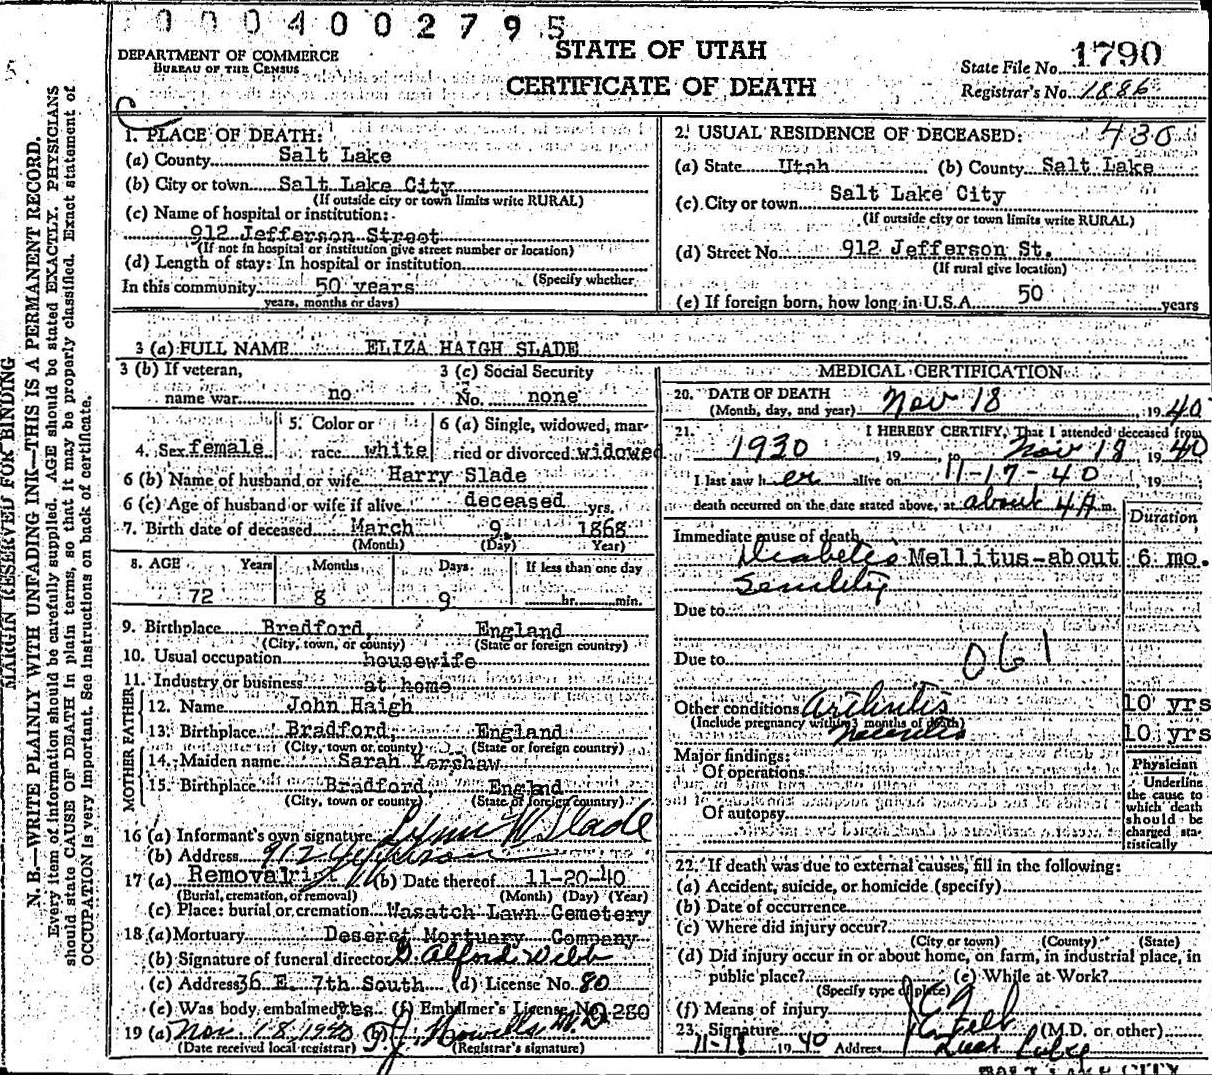 0004002795
DEPARTMENT OF COMMERCE
BUREAU OF THE CENSUS
STATE OF UTAH
CERTIFICATE OF DEATH
State File No. 1790
Registrar's No. 1886
MARGIN RESERVED FOR BINDING
N. B.—WRITE PLAINLY WITH UNFADING INK—THIS IS A PERMANENT RECORD.
Every item of information should be carefully supplied. AGE should be stated EXACTLY. PHYSICIANS
should state CAUSE OF DEATH in plain terms, so that it may be properly classified. Exact statement of
OCCUPATION is very important. See instructions on back of certificate.
1. PLACE OF DEATH:
(a) County Salt Lake
(b) City or town Salt Lake City
(If outside city or town limits write RURAL)
(c) Name of hospital or institution:
912 Jefferson Street
(If not in hospital or institution give street number or location)
(d) Length of stay: In hospital or institution
(Specify whether
In this community 50 years
years, months or days)
2. USUAL RESIDENCE OF DECEASED: 430
(a) State Utah (b) County Salt Lake
(c) City or town Salt Lake City
(If outside city or town limits write RURAL)
(d) Street No. 912 Jefferson St.
(If rural give location)
(e) If foreign born, how long in U.S.A. 50 years
3 (a) FULL NAME ELIZA HAIGH SLADE
3 (b) If veteran,
name war no
3 (c) Social Security
No. none
4. Sex female
5. Color or
race white
6 (a) Single, widowed, mar-
ried or divorced widowed
6 (b) Name of husband or wife Harry Slade
6 (c) Age of husband or wife if alive deceased yrs.
7. Birth date of deceased March 9 1868
(Month) (Day) Year)
8. AGE Years Months Days If less than one day
72 8 9 hr. min.
9. Birthplace Bradford, England
(City, town, or county) (State or foreign country)
10. Usual occupation housewife
11. Industry or business at home
FATHER
12. Name John Haigh
13. Birthplace Bradford, England
(City, town or county) (State or foreign country)
MOTHER
14. Maiden name Sarah Kershaw
15. Birthplace Bradford, England
(City, town or county) (State or foreign country)
16 (a) Informant's own signature Lynn W Slade
(b) Address 912 Jefferson
17 (a) Removal (b) Date thereof 11-20-40
(Burial, cremation, or removal) (Month) (Day) (Year)
(c) Place: burial or cremation Wasatch Lawn Cemetery
18 (a) Mortuary Deseret Mortuary Company
(b) Signature of funeral director D. Alford Webb
(c) Address 36 E. 7th South (d) License No. 80
(e) Was body embalmed yes (f) Embalmer's License No. 280
19 (a) Nov. 18 1940 (b) Howells M.D.
(Date received local registrar) (Registrar's signature)
MEDICAL CERTIFICATION
20. DATE OF DEATH
(Month, day, and year) Nov 18, 1940
21. I HEREBY CERTIFY, That I attended deceased from
1930, 19 to Nov 18 1940
I last saw her alive on 11-17-40, 19
death occurred on the date stated above, at about 4 A m.
Duration
Immediate cause of death
Diabetes Mellitus-about 6 mo.
Senility
Due to
Due to 061
Other conditions Arthritis 10 yrs
(Include pregnancy within 3 months of death)
10 yrs
Major findings:
Of operations
Of autopsy
Physician
Underline
the cause to
which death
should be
charged sta-
tistically
22. If death was due to external causes, fill in the following:
(a) Accident, suicide, or homicide (specify)
(b) Date of occurrence
(c) Where did injury occur?
(City or town) (County) (State)
(d) Did injury occur in or about home, on farm, in industrial place, in
public place? (e) While at Work?
(Specify type of place)
(f) Means of injury
23. Signature (M.D. or other)
11-18 1940 Address
SALT LAKE CITY